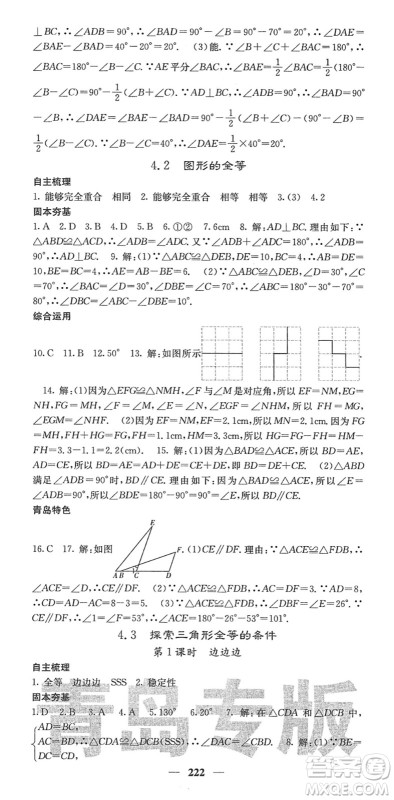 ⊥BC,∴∠ADB=∠ADC=90°,∴∠BAD=50°,∴∠DAE=
∠BAE-∠BAD=40°-20°=20°.  (3)能.∵∠B+∠C+∠BAC=180°,∴
∠BAC=180°-∠B-∠C.∵AE平分∠BAC,∴∠BAE=1/2∠BAC=1/2(180°
-∠B-∠C)=90°-1/2(∠B+∠C).∵AD⊥BC,∴∠ADE=90°,∴∠BAD=
90°-∠B,∴∠DAE=∠BAE-∠BAD=90°-1/2(∠B+∠C)-(90°-∠B)=
1/2(∠B-∠C).∵∠B-∠C=40°,∴∠DAE=1/2×40°=20°.
4.2 图形的全等
自主梳理
1. 能够完全重合 相同 2. 能够完全重合 相等 相等 3. (3) 4. 2
固本夯基
1. A 2. D 3. B 4. D 5. B 6. ①② 7. 6cm 8. 解:AD⊥BC.理由如下:∵
△ABD≌△ACD,∴∠ADB=∠ADC.又∵∠ADB+∠ADC=180°,∴∠ADB=
90°,∴AD⊥BC. 9. 解:(1)∵△ABC≌△DEB,DE=10,BC=4,∴AB=DE=
10,BE=BC=4,∴AE=AB-BE=6. (2)∵△ABC≌△DEB,∠D=30°,∠C=
70°,∴∠BAC=∠D=30°,∠DBE=∠C=70°,∴∠ABC=180°-30°-70°=80°,
∴∠DBC=∠ABC-∠DBE=10°.
综合运用
10. C 11. B 12. 50° 13. 解:如图所示
14. 解:(1)因为△EFG≌△NMH,∠F与∠M是对应角,所以EF=NM,EG=
NH,FG=MH,∠F=∠M,∠E=∠N,∠EGF=∠NHM,所以FH=GM,
∠EGM=∠NHF. (2)因为EF=NM,EF=2.1cm,所以MN=2.1cm.因为FG=
MH,FH+HG=FG,FH=1.1cm,HM=3.3cm,所以HG=FG-FH=HM-FH=
3.3-1.1=2.2(cm). 15. 解:(1)因为△BAD≌△ACE,所以BD=AE,AD=
CE,所以BD=AE=AD+DE=CE+DE. (2)△ABD满足∠ADB=90°时,BD∥
CE.理由如下:因为△BAD≌△ACE,所以∠E=∠ADB=90°,所以∠BDE=180°-
90°=90°=∠E,所以BD∥CE.
青岛特色
16. C 17. 解:如图
(1)CE∥DF.理由:∵△ACE≌△FDB,∴
∠ACE=∠D,∴CE∥DF. (2)∵△ACE≌△FDB,∴AC=DF=5.∵AD=8,
∴CD=AD-AC=8-5=3. (3)∵△ACE≌△FDB,∴∠DBF=∠E=26°.∵CE∥
DF,∴∠1=∠F=53°,∴∠ACE=180°-26°-53°=101°.
4.3 探索三角形全等的条件
第1课时 边边边
自主梳理
1. 全等 边边边 SSS 2. 稳定性
固本夯基
1. D 2. B 3. B 4. A 5. 130° 6. 20° 7. 解:在△ACD和△DBA中,
AD=BC,
AC=BD,∴△ACD≌△DCB(SSS),∴∠ADC=∠BCD. 8. 解:∵BE=
DC=CD,
222
青岛专版